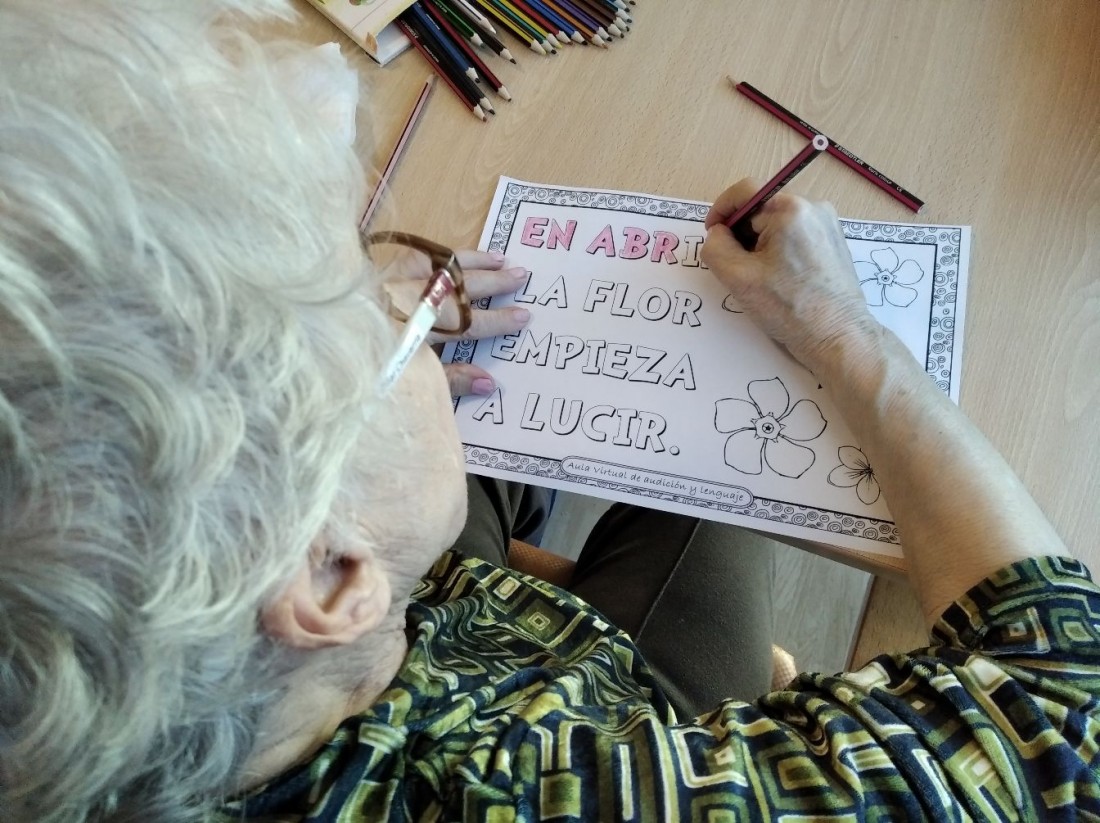 EN ABRI
LA FLOR
EMPIEZA
A LUCIR.
Aula Virtual de audición y lenguaje
STAEDTLER